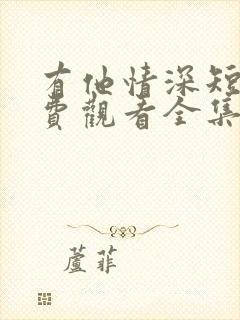 有他情深短
費觀看全集
蘆菲